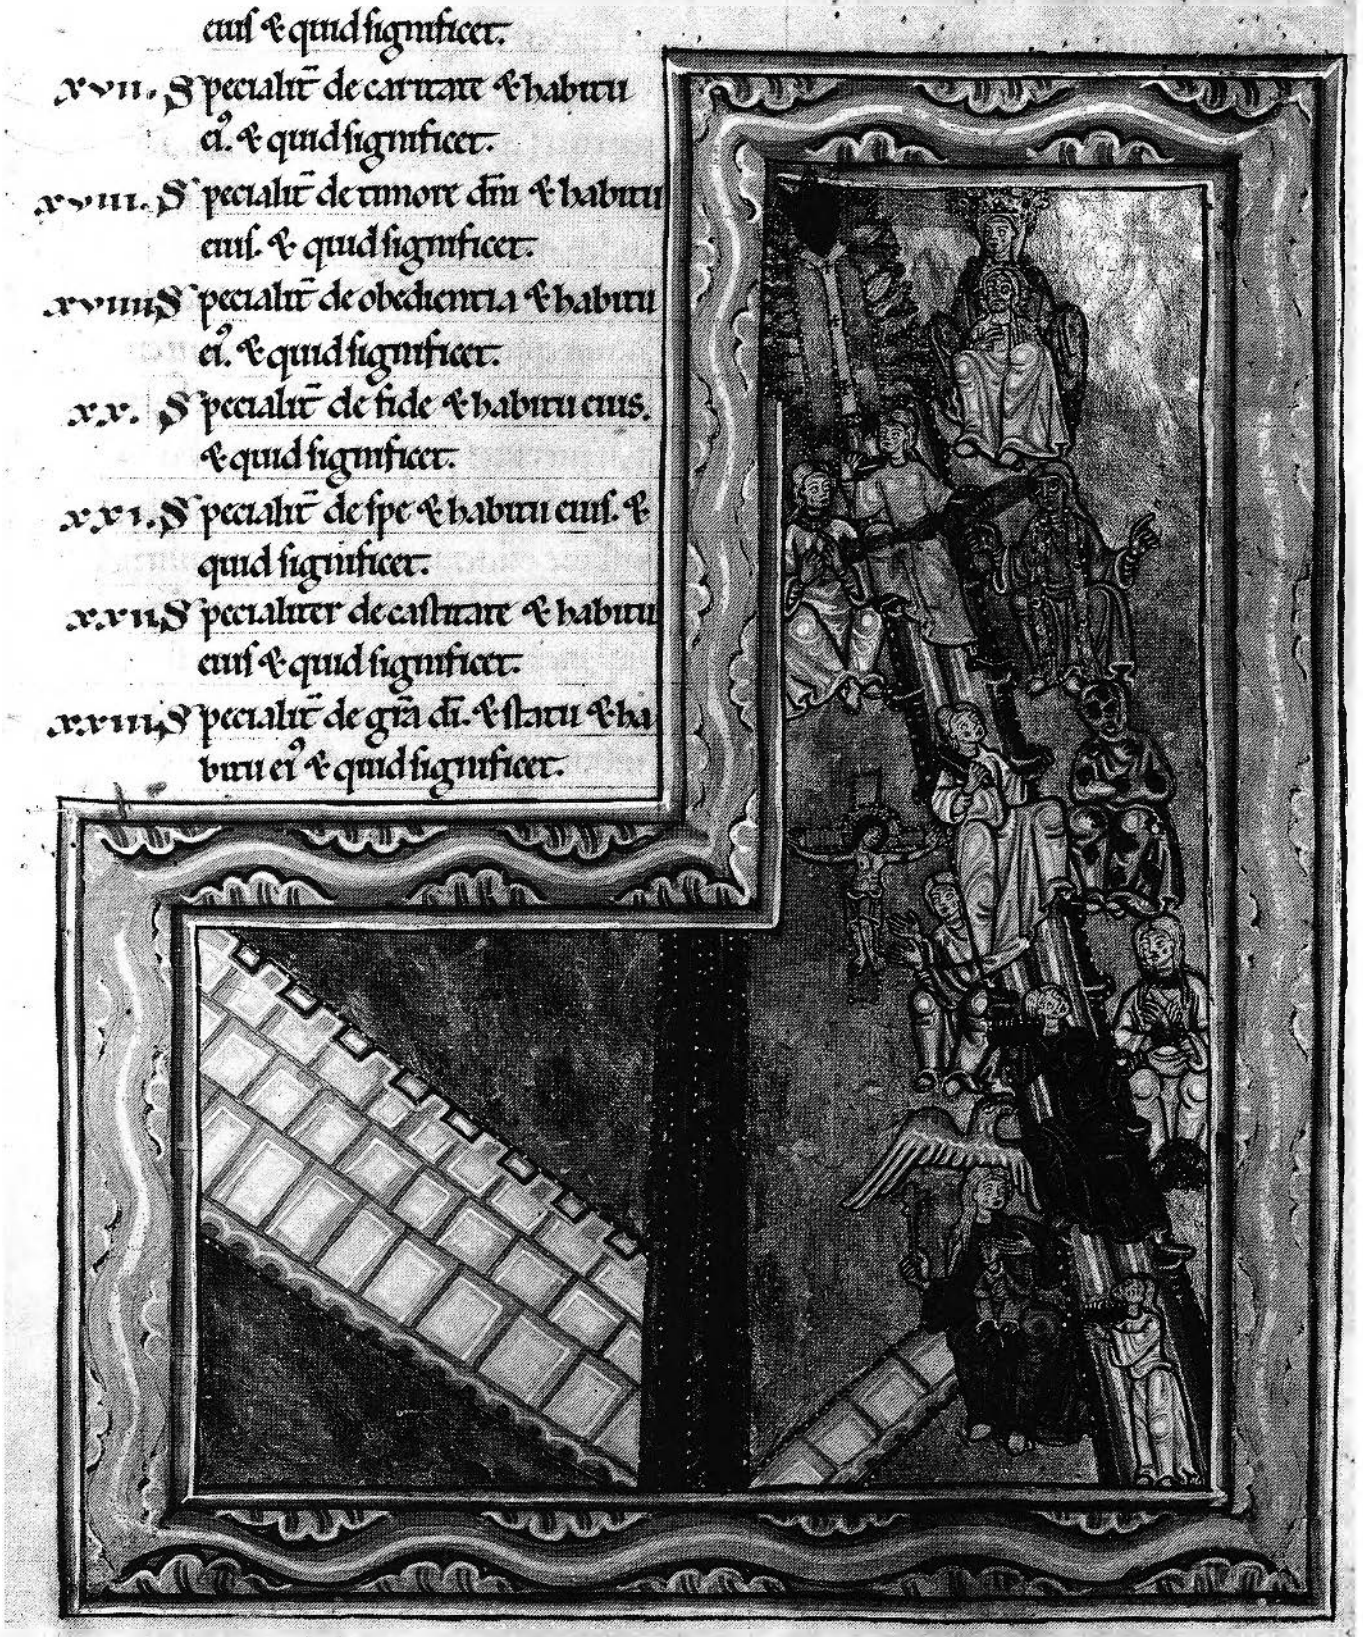 eius & quid significet.
xvii. Specialit̄ de caritate & habitu
ei᾿. & quid significet.
xviii. Specialit̄ de timore dn̄i & habitu
eius. & quid significet.
xviiii Specialit̄ de obedientia & habitu
ei᾿. & quid significet.
xx. Specialit̄ de fide & habitu eius.
& quid significet.
xxi. Specialit̄ de spe & habitu eius. &
quid significet.
xxii. Specialiter de castitate & habitu
eius & quid significet.
xxiii. Specialit̄ de grā dī. & statu & ha
bitu ei᾿ & quid significet.